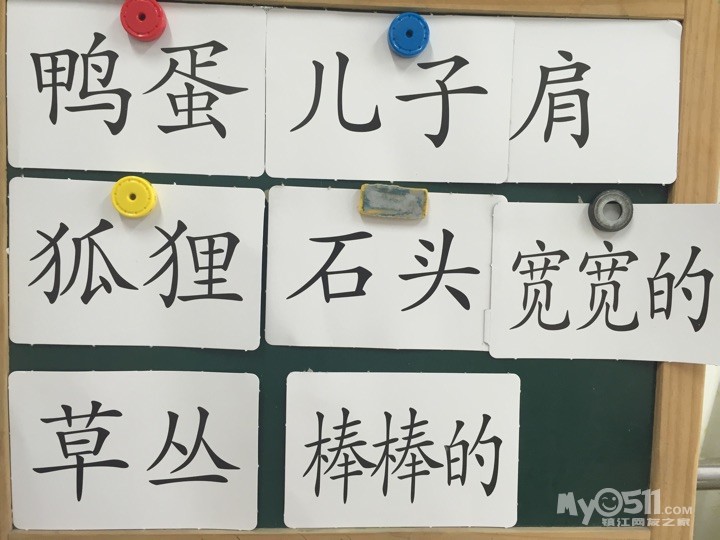 鸭蛋 儿子 肩
狐狸 石头 宽宽的
草丛 棒棒的
My0511.com
镇江网友之家